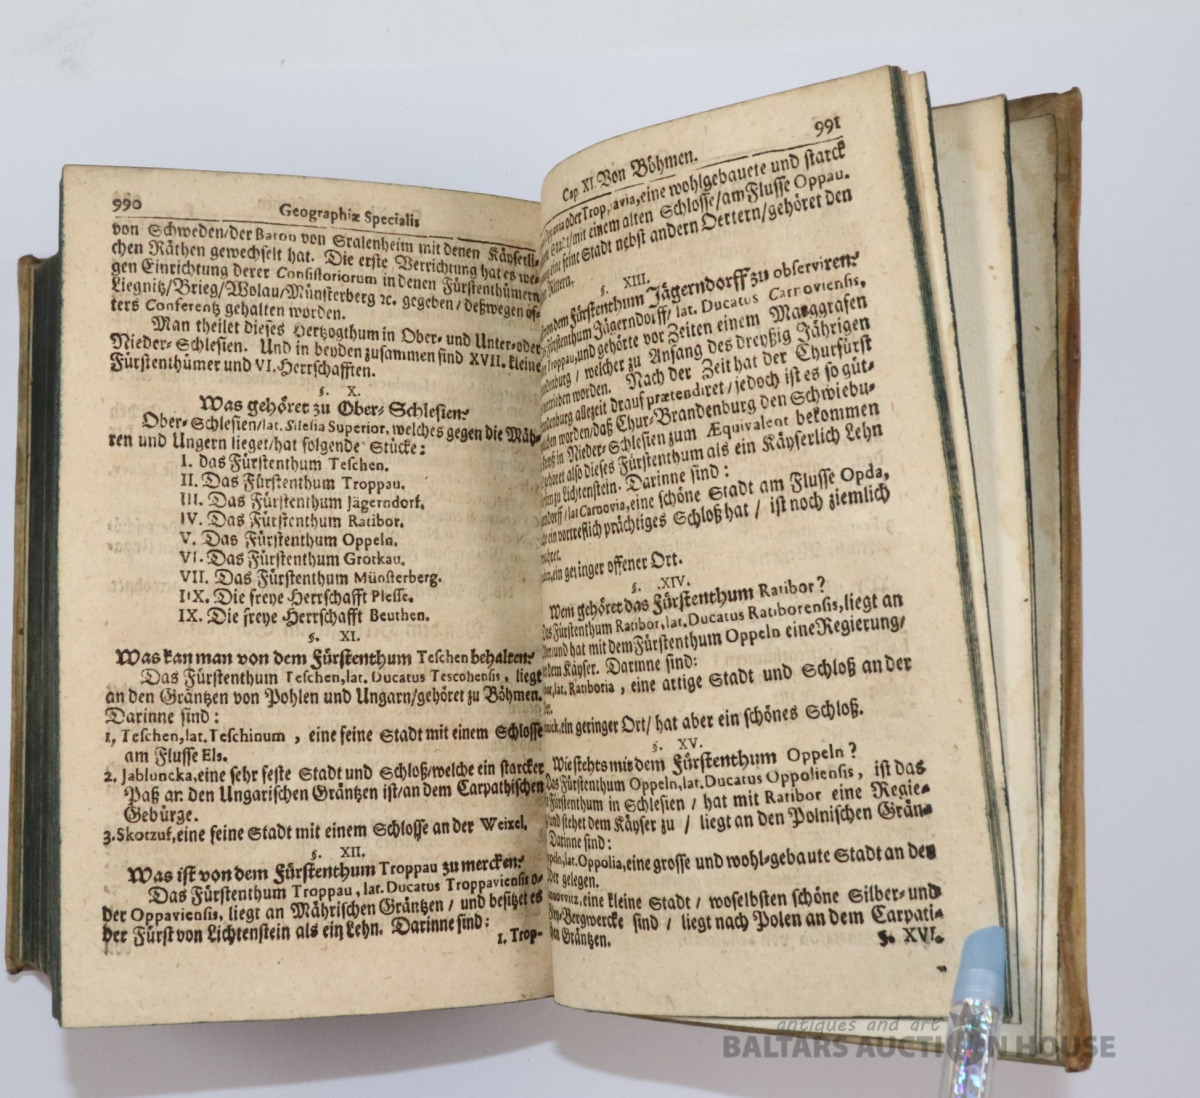 990
Geographiæ Specialis
von Schweden/der Baron von Stralenheim mit denen Käyserli-
chen Räthen gewechselt hat. Die erste Verrichtung hat es we-
gen Einrichtung derer Consistoriorum in denen Fürstenthümern
Liegnitz/Brieg/Wolau/Münsterberg ꝛc. gegeben / deßwegen öf-
ters Conferentz gehalten worden.
Man theilet dieses Hertzogthum in Ober- und Unter-oder
Nieder-Schlesien. Und in beyden zusammen sind XVII. kleine
Fürstenthümer und VI. Herrschafften.
§. X.
Was gehöret zu Ober-Schlesien?
Ober-Schlesien/lat. Silesia Superior, welches gegen die Mäh-
ren und Ungern lieget/hat folgende Stücke:
I. das Fürstenthum Teschen.
II. Das Fürstenthum Troppau.
III. Das Fürstenthum Jägerndorf.
IV. Das Fürstenthum Ratibor.
V. Das Fürstenthum Oppeln.
VI. Das Fürstenthum Grotkau.
VII. Das Fürstenthum Münsterberg.
IIX. Die freye Herrschafft Plesse.
IX. Die freye Herrschafft Beuthen.
§. XI.
Was kan man von dem Fürstenthum Teschen behalten?
Das Fürstenthum Teschen, lat. Ducatus Teschensis, liegt
an den Gräntzen von Pohlen und Ungarn/gehöret zu Böhmen.
Darinne sind:
1, Teschen, lat. Teschinum, eine feine Stadt mit einem Schlosse
am Flusse Els.
2. Jabluncka, eine sehr feste Stadt und Schloß/welche ein starcker
Paß an den Ungarischen Gräntzen ist/an dem Carpathischen
Gebürge.
3. Skotzuf, eine feine Stadt mit einem Schlosse an der Weixel.
§. XII.
Was ist von dem Fürstenthum Troppau zu mercken?
Das Fürstenthum Troppau, lat. Ducatus Troppaviensis o-
der Oppaviensis, liegt an Mährischen Gräntzen / und besitzet es
der Fürst von Lichtenstein als ein Lehn. Darinne sind:
1. Trop-
991
Cap. XI. Von Böhmen.
oder Troppavia, eine wohlgebauete und starck
Stadt/mit einem alten Schlosse/am Flusse Oppau.
eine feine Stadt nebst andern Oertern/gehöret den
Rittern.
§. XIII.
von dem Fürstenthum Jägerndorff zu observiren?
Fürstenthum Jägerndorff/ lat. Ducatus Carnoviensis,
Troppau, und gehörte vor Zeiten einem Marggrafen
/ welcher zu Anfang des dreyßig Jährigen
worden. Nach der Zeit hat der Churfürst
allezeit drauf prætendiret / jedoch ist es so güt-
worden/daß Chur-Brandenburg den Schwiebu-
in Nieder-Schlesien zum Æquivalent bekommen
gehöret also dieses Fürstenthum als ein Käyserlich Lehn
zu Lichtenstein. Darinne sind:
lat Carnovia, eine schöne Stadt am Flusse Opda,
ein vortreflich prächtiges Schloß hat / ist noch ziemlich
ein geringer offener Ort.
§. XIV.
Wem gehöret das Fürstenthum Ratibor?
Das Fürstenthum Ratibor, lat. Ducatus Ratiborensis, liegt an
und hat mit dem Fürstenthum Oppeln eine Regierung/
dem Käyser. Darinne sind:
lat. Ratiboria, eine artige Stadt und Schloß an der
ein geringer Ort/ hat aber ein schönes Schloß.
§. XV.
Wie stehts mit dem Fürstenthum Oppeln?
Das Fürstenthum Oppeln, lat. Ducatus Oppoliensis, ist das
Fürstenthum in Schlesien / hat mit Ratibor eine Regie-
und stehet dem Käyser zu / liegt an den Polnischen Grän-
Darinne sind:
lat. Oppolia, eine grosse und wohl-gebaute Stadt an der
gelegen.
eine kleine Stadt / woselbsten schöne Silber- und
Bergwercke sind / liegt nach Polen an dem Carpati-
Gräntzen.
§. XVI.
antiques and art
BALTARS AUCTION HOUSE